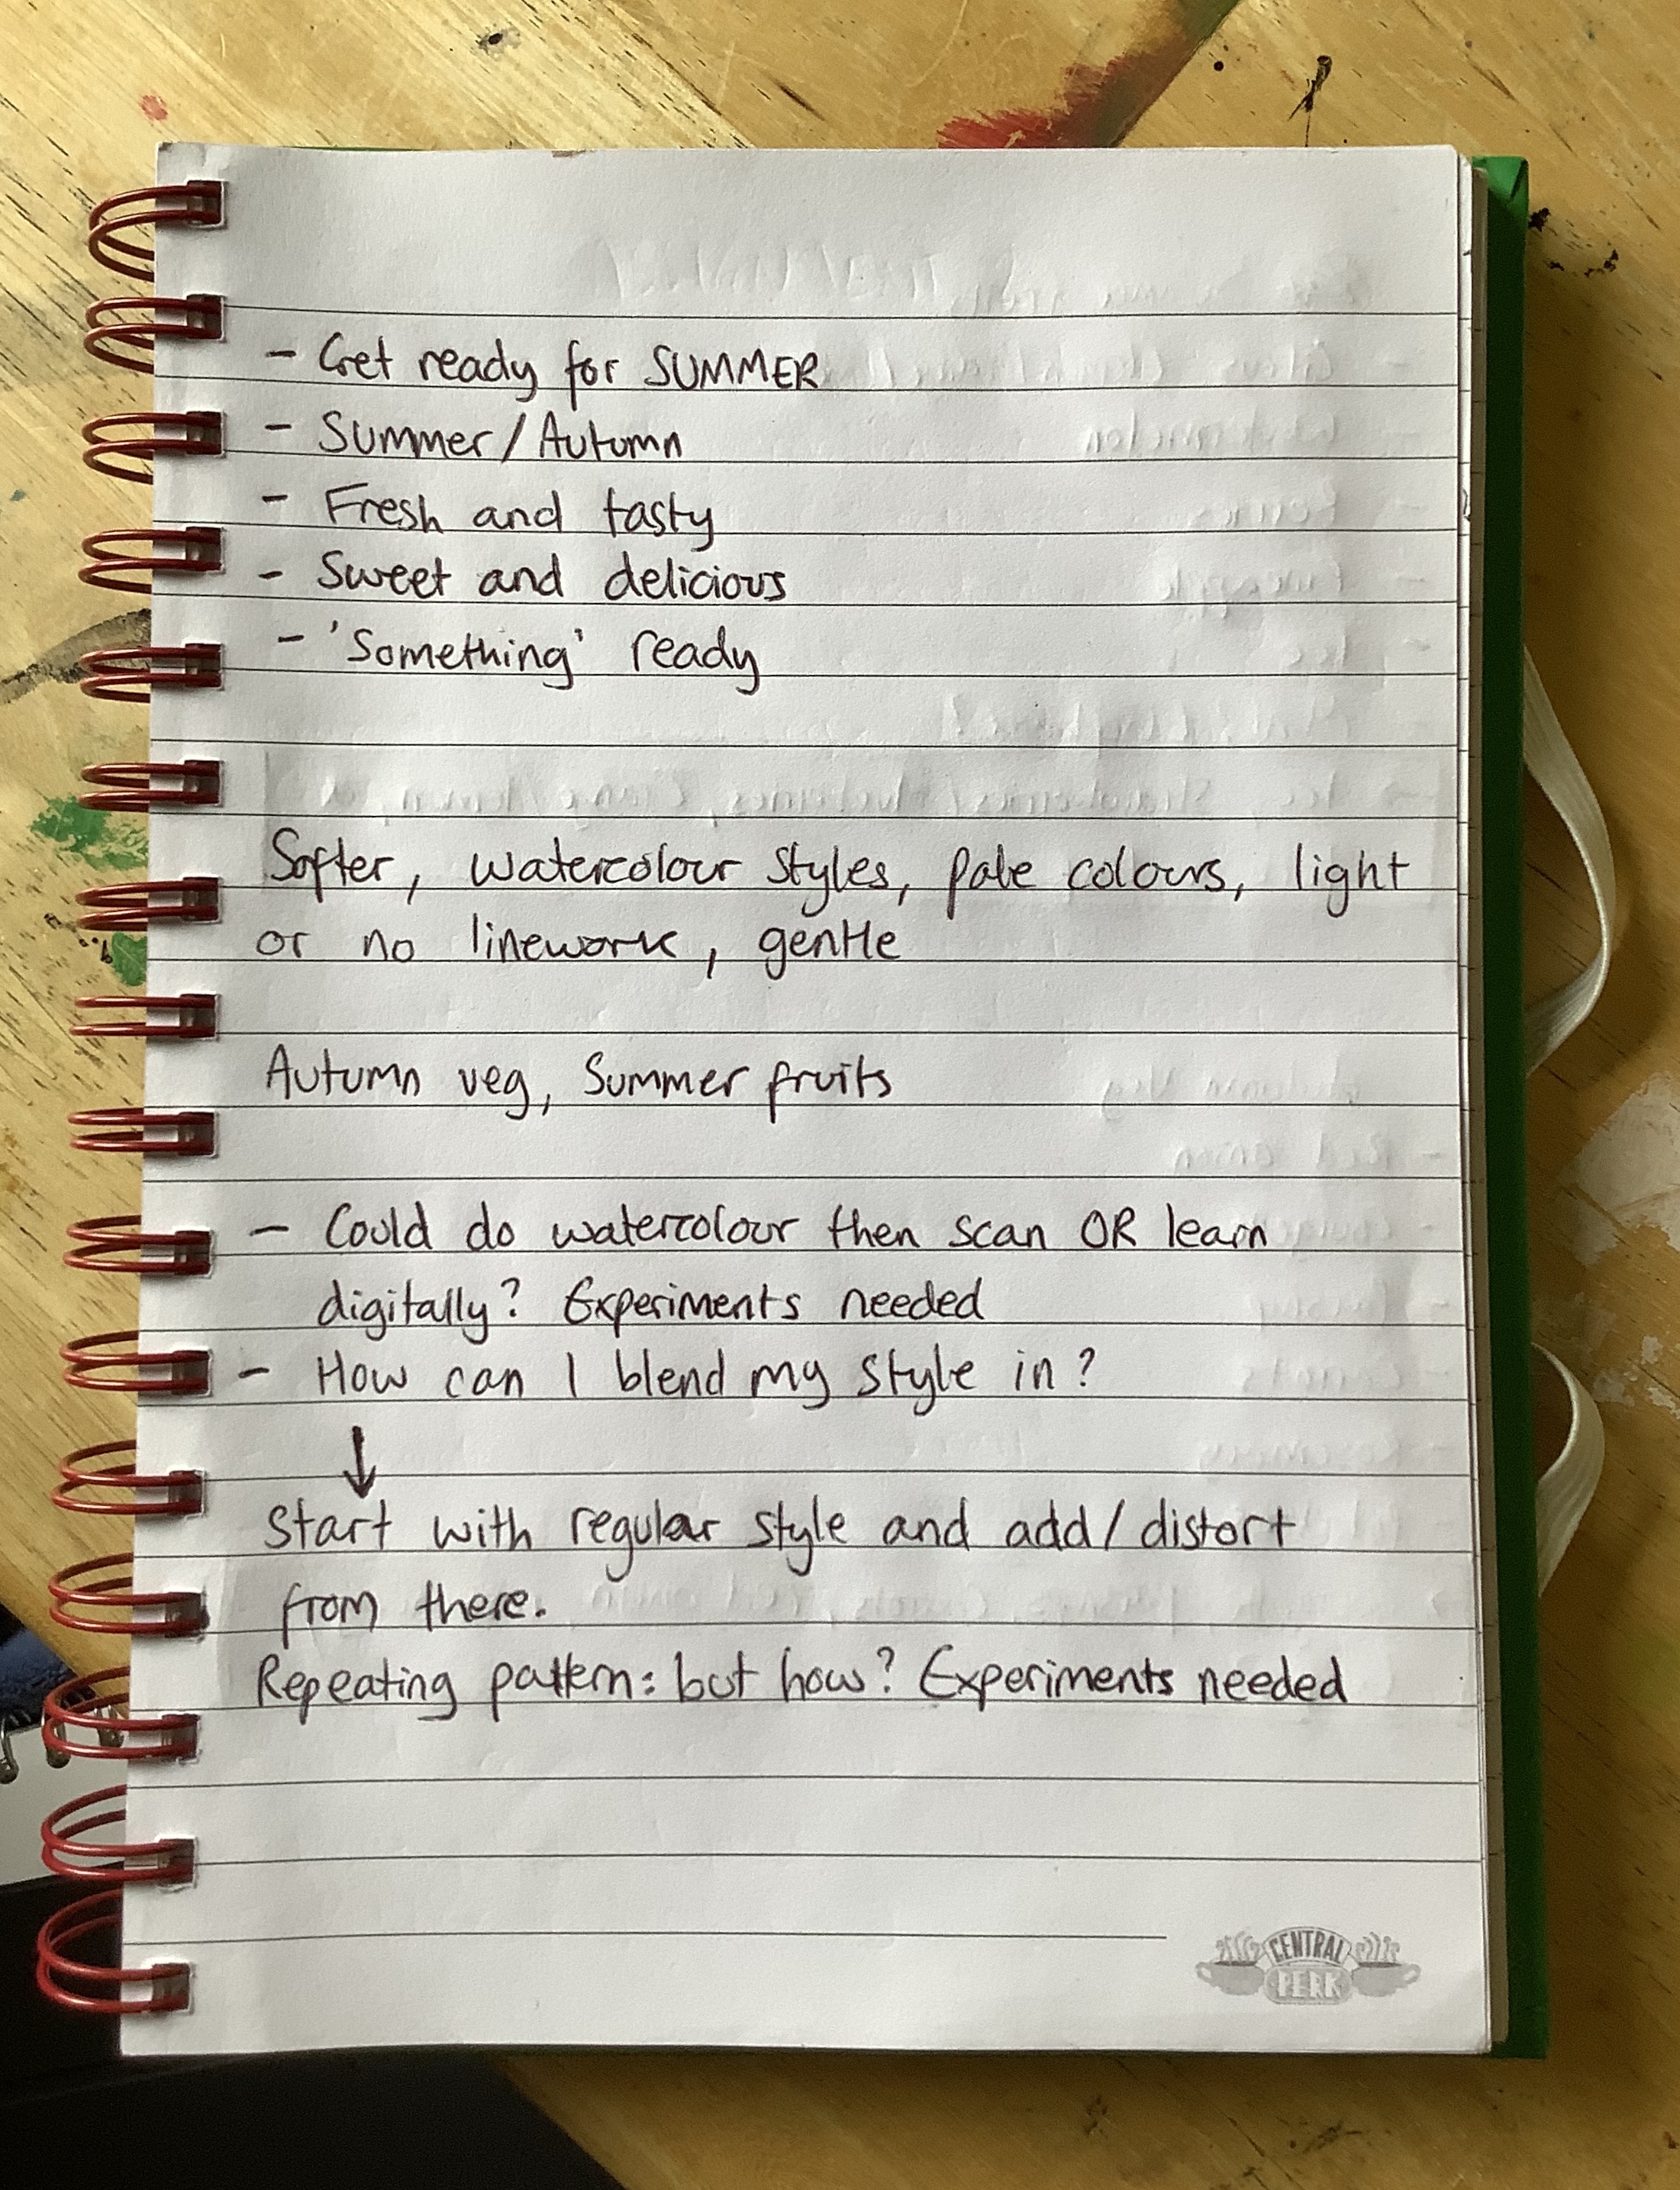 - Get ready for SUMMER
- Summer/Autumn
- Fresh and tasty
- Sweet and delicious
- 'Something' ready
Softer, watercolour styles, pale colours, light
or no linework, gentle
Autumn veg, Summer fruits
- Could do watercolour then scan OR learn
digitally? Experiments needed
- How can I blend my style in?
↓
Start with regular style and add/distort
from there.
Repeating pattern: but how? Experiments needed
CENTRAL
PERK